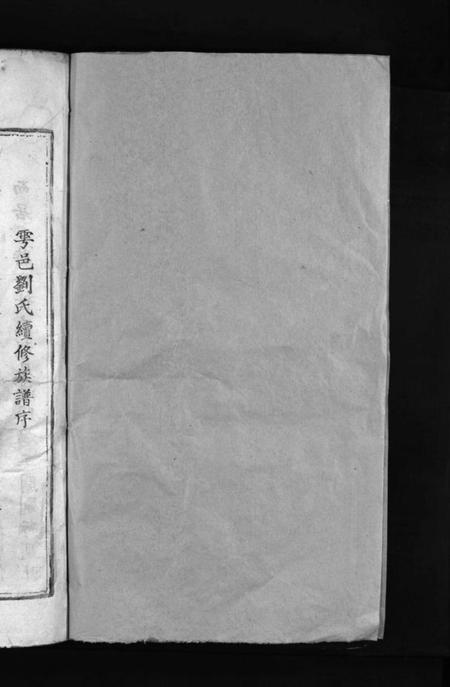 雩邑劉氏續修族譜序